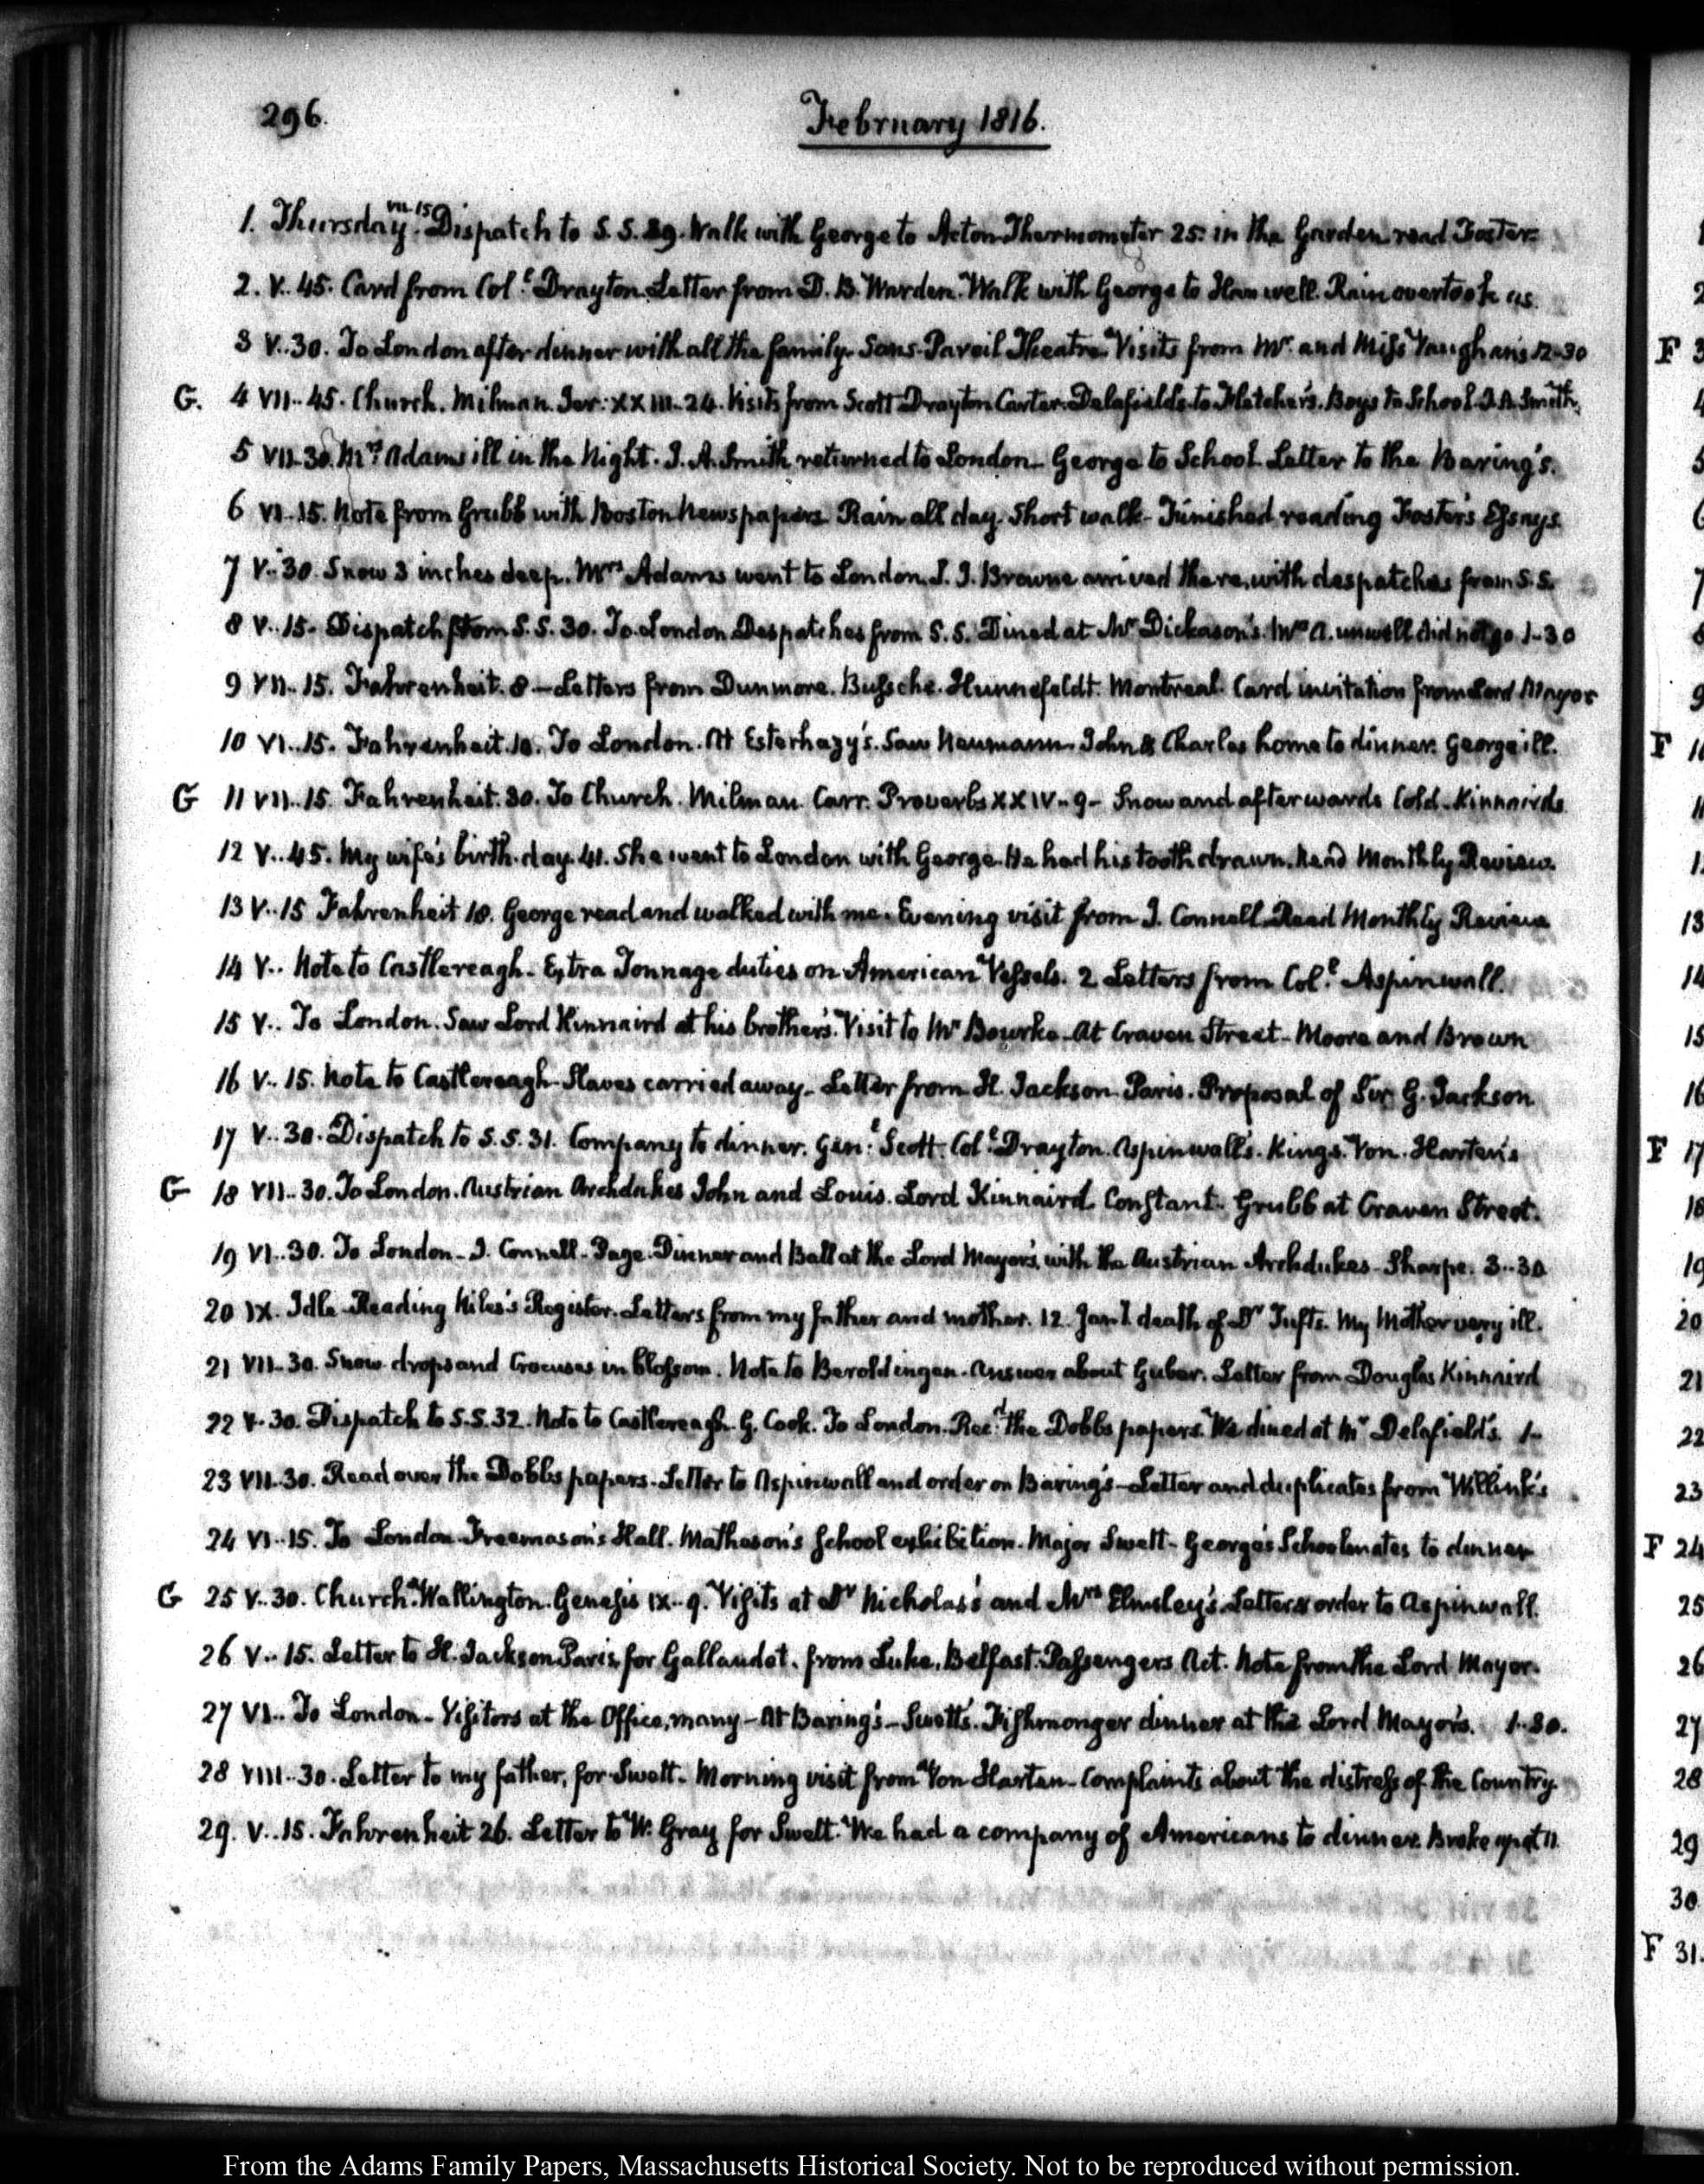 296.
February 1816.
1. Thursday. VII.15 Dispatch to S.S. 29. Walk with George to Acton. Thermometer 25. in the Garden. read Foster.
2. V..45. Card from Col.l Drayton. Letter from D. B. Warden. Walk with George to Hanwell. Rain overtook us.
3 V..30. To London after dinner with all the family. Sans-Pareil Theatre. Visits from Mr. and Miss Vaughan's 12-30
G. 4 VII..45. Church. Milman. Jer: XXIII.24. Visits from Scott Drayton Carter. Delafields. to Fletcher's. Boys to School. J. A. Smith.
5 VII-30. Mrs Adams ill in the Night. J. A. Smith returned to London. George to School. Letter to the Baring's.
6 VI..15. Note from Grubb with Boston Newspapers. Rain all day. Short walk. Finished reading Foster's Essays.
7 V..30. Snow 3 inches deep. Mrs Adams went to London. J. J. Browne arrived there, with despatches from S.S.
8 V..15. Dispatch from S.S. 30. To London Despatches from S.S. Dined at Mr Dickason's. Mrs A. unwell did not go 1-30
9 VII..15. Fahrenheit. 8 - Letters from Dunmore. Bussche. Hunnefeldt. Montreal. Card invitation from Lord Mayor
10 VI..15. Fahrenheit. 10. To London. At Esterhazy's. Saw Neumann. John & Charles home to dinner. George ill.
G 11 VII..15. Fahrenheit. 30. To Church. Milman. Carr. Proverbs XXIV-9- Snow and afterwards Cold. Kinnairds
12 V..45. My wife's birth-day. 41. She went to London with George. He had his tooth drawn. Read Monthly Review.
13 V..15 Fahrenheit 18. George read and walked with me. Evening visit from J. Connell. Read Monthly Review
14 V.. Note to Castlereagh. Extra Tonnage duties on American Vessels. 2 Letters from Col.l Aspinwall.
15 V.. To London. Saw Lord Kinnaird at his brother's. Visit to Mr Bourke. At Craven Street. Moore and Brown
16 V..15. Note to Castlereagh. Slaves carried away. Letter from H. Jackson. Paris. Proposal of Sir G. Jackson
17 V..30. Dispatch to S.S. 31. Company to dinner. Gen.l Scott. Col.l Drayton. Aspinwall's. Kings. Von. Harten's
G 18 VII..30. To London. Austrian Archdukes John and Louis. Lord Kinnaird. Constant. Grubb at Craven Street.
19 VI..30. To London. J. Connell. Page. Dinner and Ball at the Lord Mayor's, with the Austrian Archdukes. Sharpe. 3..30
20 IX. Idle. Reading Niles's Register. Letters from my father and mother. 12. Jan.y death of Dr Tufts. My Mother very ill.
21 VII-30. Snow-drops and Crocuses in blossom. Note to Beroldingen. Answer about Guber. Letter from Douglas Kinnaird
22 V.30. Dispatch to S.S. 32. Note to Castlereagh. G. Cook. To London. Rec.d the Dobbs papers. We dined at Mr Delafield's. 1-
23 VII.30. Read over the Dobbs papers. Letter to Aspinwall and order on Baring's - Letter and duplicates from Willink's
24 VI..15. To London. Freemason's Hall. Matheson's School exhibition. Major Swett. George's Schoolmates to dinner
G 25 V..30. Church. Wallington. Genesis IX..9. Visits at Dr Nicholas's and Mrs Elmsley's. Letter & order to Aspinwall.
26 V..15. Letter to H. Jackson Paris, for Gallaudet. from Luke, Belfast. Passengers Act. Note from the Lord Mayor.
27 VI.. To London. Visitors at the Office, many - At Baring's - Swett's. Fishmonger dinner at the Lord Mayor's. 1..30.
28 VIII..30. Letter to my father, for Swett. Morning visit from Von Harten. Complaints about the distress of the Country.
29. V..15. Fahrenheit 26. Letter to W. Gray for Swett. We had a company of Americans to dinner. Broke up at 11.
F 3
F 10
11
13
14
15
16
F 17
18
19
20
21
22
23
F 24
25
26
27
28
29
30
F 31.
From the Adams Family Papers, Massachusetts Historical Society. Not to be reproduced without permission.